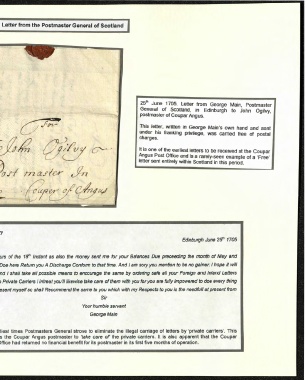 Letter from the Postmaster General of Scotland
For
John Ogilvy
Post master In
Couper of Angus
25th June 1705. Letter from George Main, Postmaster
General of Scotland, in Edinburgh to John Ogilvy,
postmaster of Coupar Angus.
This letter, written in George Main's own hand and sent
under his franking privilege, was carried free of postal
charges.
It is one of the earliest letters to be received at the Coupar
Angus Post Office and is a rarely-seen example of a 'Free'
letter sent entirely within Scotland in this period.
Edinburgh June 25th 1705
of the 18th Instant as also the money sent me for your Extences Due preceeding the month of May and
Doe here Return you A Discharge Conform to that time. And I am sory you mention to be no gainer I hope it will
and I shall take all possible means to encourage the same by ordering safe all your Foreign and Inland Letters
Private Carriers I intreat you'll likewise take care of them with you for you are fully impowered to doe every thing
present myself so shall Recommend the same to you which with my Respects to you is the needfull at present from
Sir
Your humble servant
George Main
times Postmasters General strove to eliminate the illegal carriage of letters by 'private carriers'. This
the Coupar Angus postmaster to 'take care of' the private carriers. It is also apparent that the Couper
Office had returned no financial benefit for its postmaster in its first five months of operation.